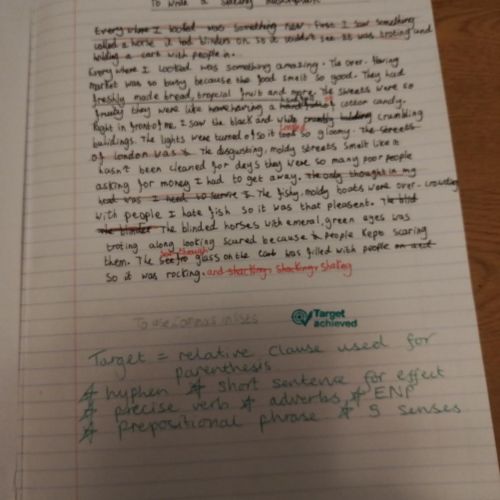 To write a setting description
Every where I looked was something new. First I saw something
called a horse it had blinders on so it couldn't see it was troting and
holding a cart with people in.
Every where I looked was something amazing. The over-flowing
market was so busy because the food smelt so good. They had
freshly made bread, tropical fruit and more. The sweets were so
fruity they were like having a of cotton candy.
Right in front of me, I saw the black and white crumbling
buildings. The lights were turned of so it looked so gloomy. The streets
of london was The disgusting, moldy streets smelt like it
hasn't been cleaned for days they were so many poor people
asking for money I had to get away. The only thought in my
head was I need to The fishy, moldy boats were over-crowding
with people I hate fish so it was that pleasent. The blid
The blinder The blinded horses with emeral, green eyes was
troting along looking scared because people kept scaring
them. The see-through glass on the cart was filled with people
so it was rocking, and shacking. Shacking. Shaking
To use commas in lists
Target achieved
Target = relative clause used for
parenthesis
hyphen short sentence for effect
precise verb adverbs ENP
prepositional phrase 5 senses